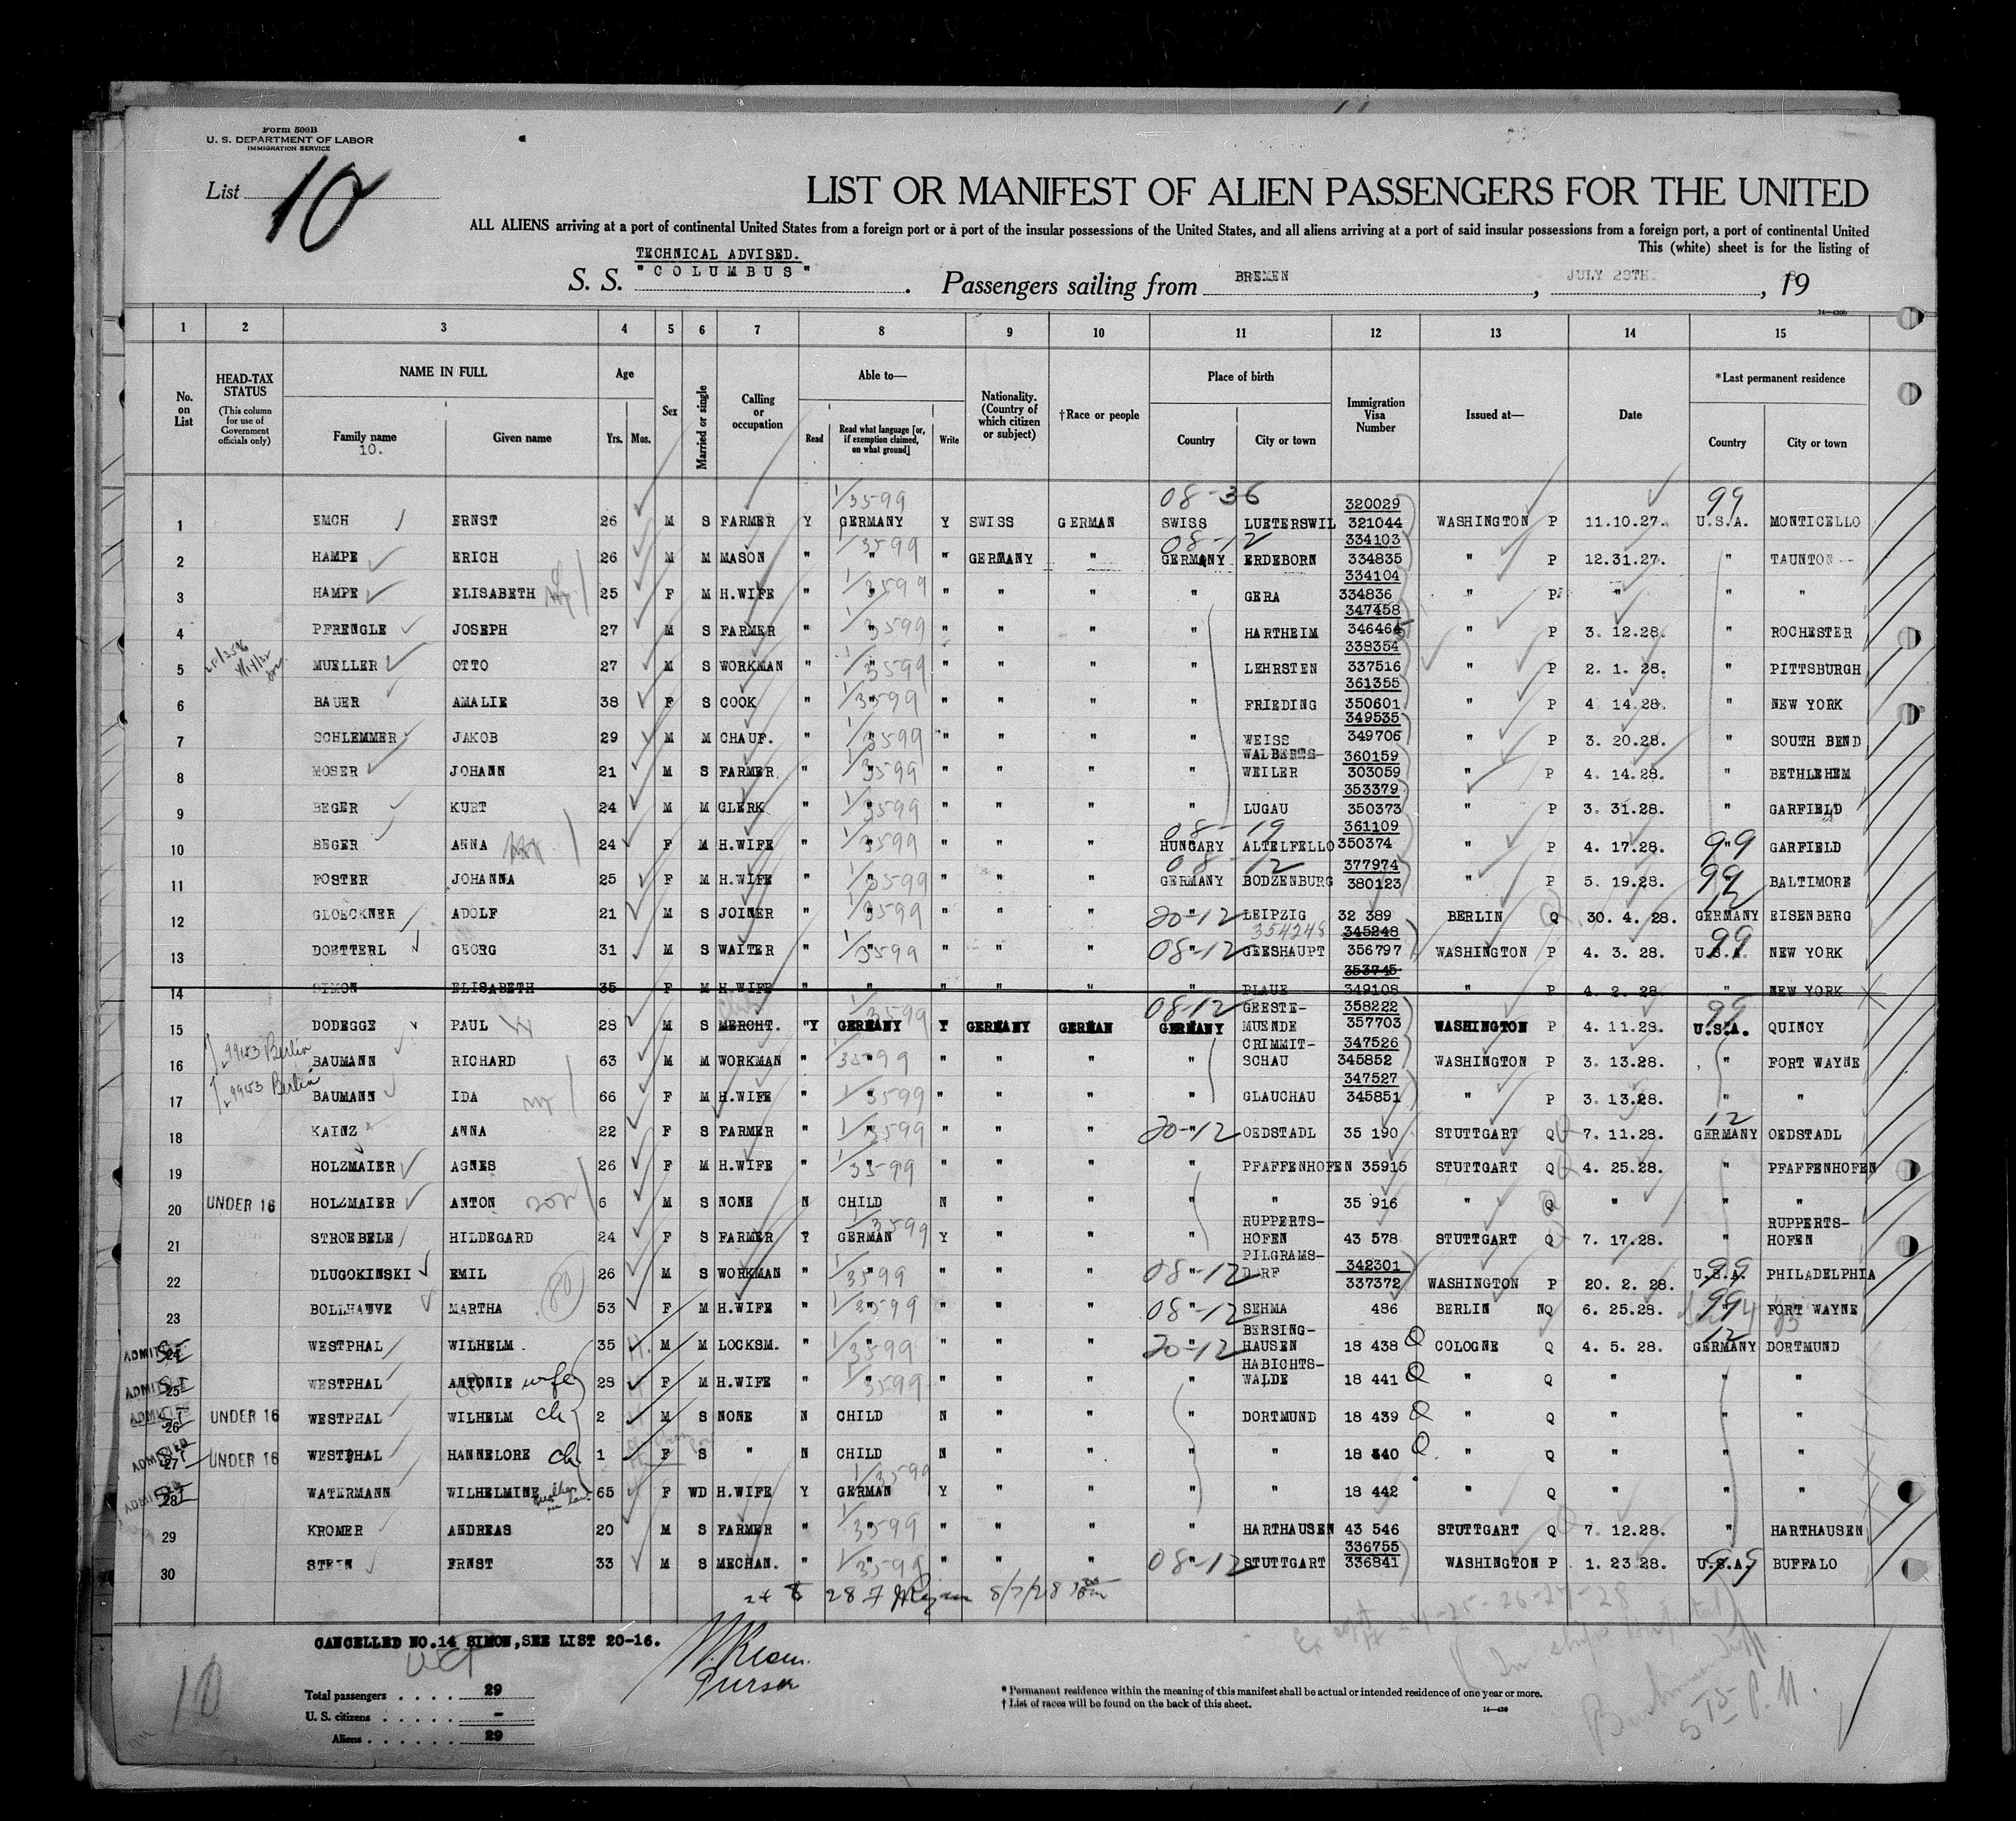 Form 500B
U. S. DEPARTMENT OF LABOR
IMMIGRATION SERVICE
List 10
LIST OR MANIFEST OF ALIEN PASSENGERS FOR THE UNITED
ALL ALIENS arriving at a port of continental United States from a foreign port or a port of the insular possessions of the United States, and all aliens arriving at a port of said insular possessions from a foreign port, a port of continental United
This (white) sheet is for the listing of
TECHNICAL ADVISED.
S. S. "COLUMBUS". Passengers sailing from BREMEN, JULY 28TH., 19
1 2 3 4 5 6 7 8 9 10 11 12 13 14 15
No. on List
HEAD-TAX STATUS (This column for use of Government officials only)
NAME IN FULL
Family name
10.
Given name
Age
Yrs. Mos.
Sex
Married or single
Calling or occupation
Able to—
Read
Read what language [or, if exemption claimed, on what ground]
Write
Nationality. (Country of which citizen or subject)
†Race or people
Place of birth
Country
City or town
Immigration Visa Number
Issued at—
Date
*Last permanent residence
Country
City or town
1 EMCH ERNST 26 M S FARMER Y GERMANY Y SWISS GERMAN SWISS LUETERSWIL 320029 321044 WASHINGTON P 11.10.27. U.S.A. MONTICELLO
2 HAMPE ERICH 26 M M MASON " " " GERMANY " GERMANY ERDEBORN 334103 334835 " P 12.31.27. " TAUNTON
3 HAMPE ELISABETH 25 F M H.WIFE " " " " " " GERA 334104 334836 " P " " "
4 PFRENGLE JOSEPH 27 M S FARMER " " " " " " HARTHEIM 347458 346464 " P 3. 12.28. " ROCHESTER
5 MUELLER OTTO 27 M S WORKMAN " " " " " " LEHRSTEN 338354 337516 " P 2. 1. 28. " PITTSBURGH
6 BAUER AMALIE 38 F S COOK " " " " " " FRIEDING 361355 350601 " P 4. 14.28. " NEW YORK
7 SCHLEMMER JAKOB 29 M M CHAUF. " " " " " " WEISS 349535 349706 " P 3. 20.28. " SOUTH BEND
8 MOSER JOHANN 21 M S FARMER " " " " " " WALBERTS-WEILER 360159 303059 " P 4. 14.28. " BETHLEHEM
9 BEGER KURT 24 M M CLERK " " " " " " LUGAU 353379 350373 " P 3. 31.28. " GARFIELD
10 BEGER ANNA 24 F M H.WIFE " " " " " HUNGARY ALTELFELLO 361109 350374 " P 4. 17.28. " GARFIELD
11 FOSTER JOHANNA 25 F M H.WIFE " " " " " GERMANY BODZENBURG 377974 380123 " P 5. 19.28. " BALTIMORE
12 GLOECKNER ADOLF 21 M S JOINER " " " " " " LEIPZIG 32 389 BERLIN Q 30. 4. 28. GERMANY EISENBERG
13 DOETTERL GEORG 31 M S WAITER " " " " " " GEESHAUPT 354248 345248 356797 WASHINGTON P 4. 3. 28. U.S.A. NEW YORK
14 SIMON ELISABETH 35 F M H.WIFE " " " " " " PLAUE 353745 349108 " P 4. 2. 28. " NEW YORK
15 DODEGGE PAUL 28 M S MERCHT. "Y GERMANY Y GERMANY GERMAN GERMANY GEESTE-MUENDE 358222 357703 WASHINGTON P 4. 11.28. U.S.A. QUINCY
16 BAUMANN RICHARD 63 M M WORKMAN " " " " " " CRIMMIT-SCHAU 347526 345852 WASHINGTON P 3. 13.28. " FORT WAYNE
17 BAUMANN IDA 66 F M H.WIFE " " " " " " GLAUCHAU 347527 345851 " P 3. 13.28. " "
18 KAINZ ANNA 22 F S FARMER " " " " " " OEDSTADL 35 190 STUTTGART Q 7. 11.28. GERMANY OEDSTADL
19 HOLZMAIER AGNES 26 F M H.WIFE " " " " " " PFAFFENHOFEN 35915 STUTTGART Q 4. 25.28. " PFAFFENHOFEN
20 UNDER 16 HOLZMAIER ANTON 6 M S NONE N CHILD N " " " " 35 916 " Q " " "
21 STROEBELE HILDEGARD 24 F S FARMER Y GERMAN Y " " " RUPPERTS-HOFEN 43 578 STUTTGART Q 7. 17.28. " RUPPERTS-HOFEN
22 DLUGOKINSKI EMIL 26 M S WORKMAN " " " " " " PILGRAMS-D RF 342301 337372 WASHINGTON P 20. 2. 28. U.S.A. PHILADELPHIA
23 BOLLHAUVE MARTHA 53 F M H.WIFE " " " " " " SEHMA 486 BERLIN NQ 6. 25.28. FORT WAYNE
24 ADMITTED WESTPHAL WILHELM 35 M M LOCKSM. " " " " " " BERSING-HAUSEN 18 438 COLOGNE Q 4. 5. 28. GERMANY DORTMUND
25 ADMITTED WESTPHAL ANTONIE wife 28 F M H.WIFE " " " " " " HABICHTS-WALDE 18 441 " Q " " "
26 ADMITTED UNDER 16 WESTPHAL WILHELM ch 2 M S NONE N CHILD N " " " DORTMUND 18 439 " Q " " "
27 ADMITTED UNDER 16 WESTPHAL HANNELORE ch 1 F S " N CHILD N " " " " 18 440 " Q " " "
28 ADMITTED WATERMANN WILHELMINE mother in law 65 F WD H.WIFE Y GERMAN Y " " " " 18 442 " Q " " "
29 KROMER ANDREAS 20 M S FARMER " " " " " " HARTHAUSEN 43 546 STUTTGART Q 7. 12.28. " HARTHAUSEN
30 STEIN ERNST 33 M S MECHAN. " " " " " " STUTTGART 336755 336841 WASHINGTON P 1. 23 28. U.S.A. BUFFALO
CANCELLED NO.14 SIMON, SEE LIST 20-16.
Purser
10
Total passengers . . . . 29
U. S. citizens . . . . . -
Aliens . . . . . . 29
* Permanent residence within the meaning of this manifest shall be actual or intended residence of one year or more.
† List of races will be found on the back of this sheet.
14—430